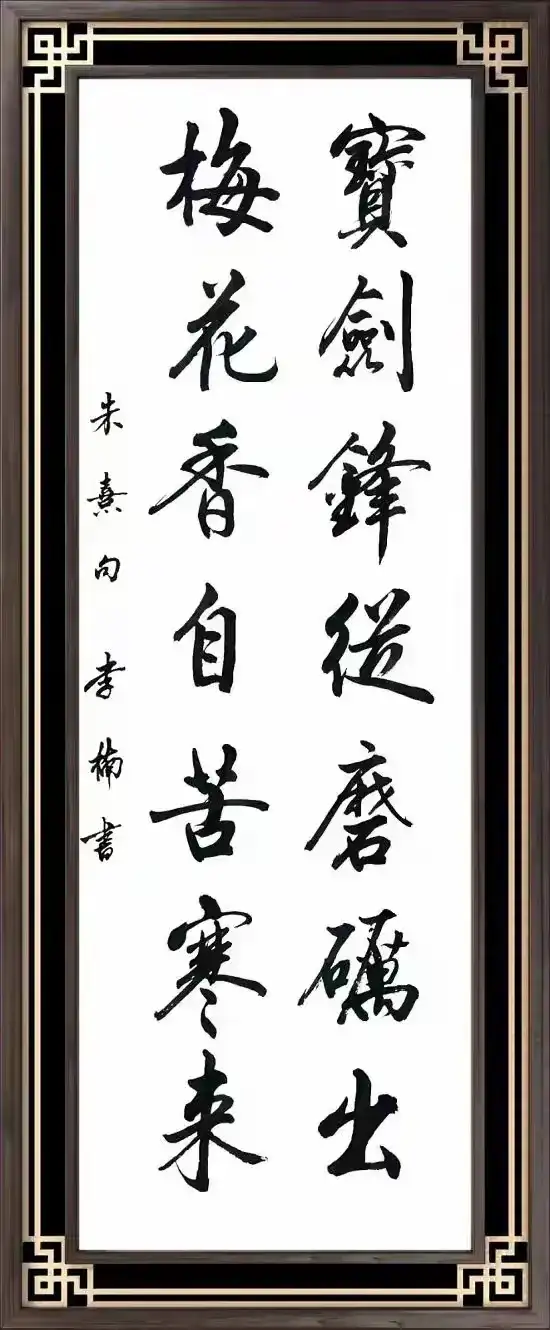 寶劍鋒從磨礪出
梅花香自苦寒來
朱熹句 李楠書